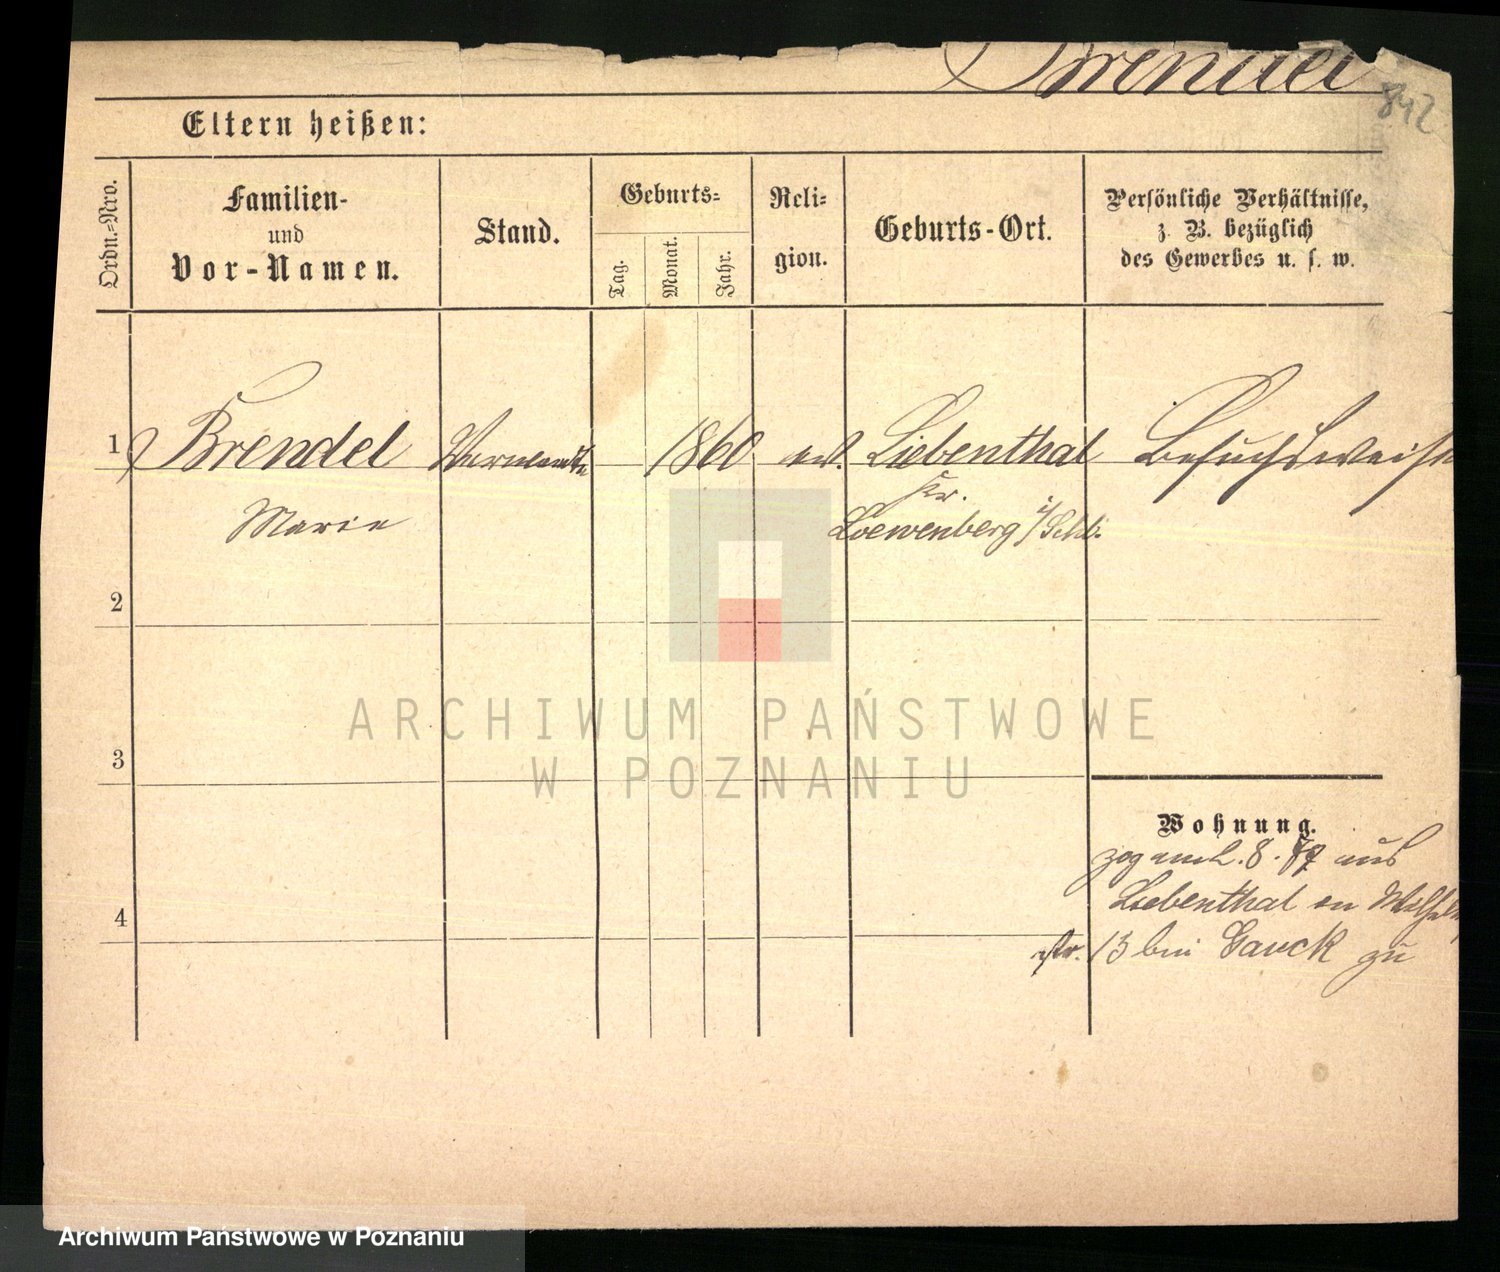 Brendel
842
Eltern heißen:
Ordn.=Nro.
Familien-
und
Vor-Namen.
Stand.
Geburts=
Tag.
Monat.
Jahr.
Reli=
gion.
Geburts-Ort.
Persönliche Verhältnisse,
z. B. bezüglich
des Gewerbes u. s. w.
1 Brendel 1860 ev. Liebenthal Besuchsweise
Marie
Kr.
Loewenberg i/Schl.
2
3
4
Wohnung.
zog am 2. 8. aus
Liebenthal en Wilhelm
str. 13 bei Gauck zu
ARCHIWUM PAŃSTWOWE
W POZNANIU
Archiwum Państwowe w Poznaniu